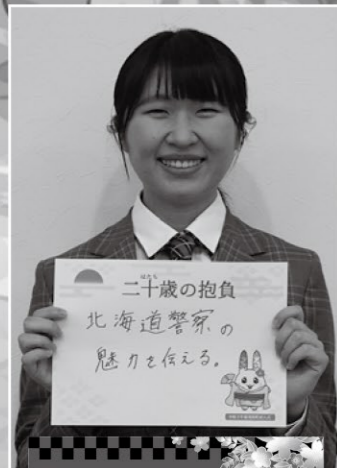 はたち
二十歳の抱負
北海道警察の
魅力を伝える。